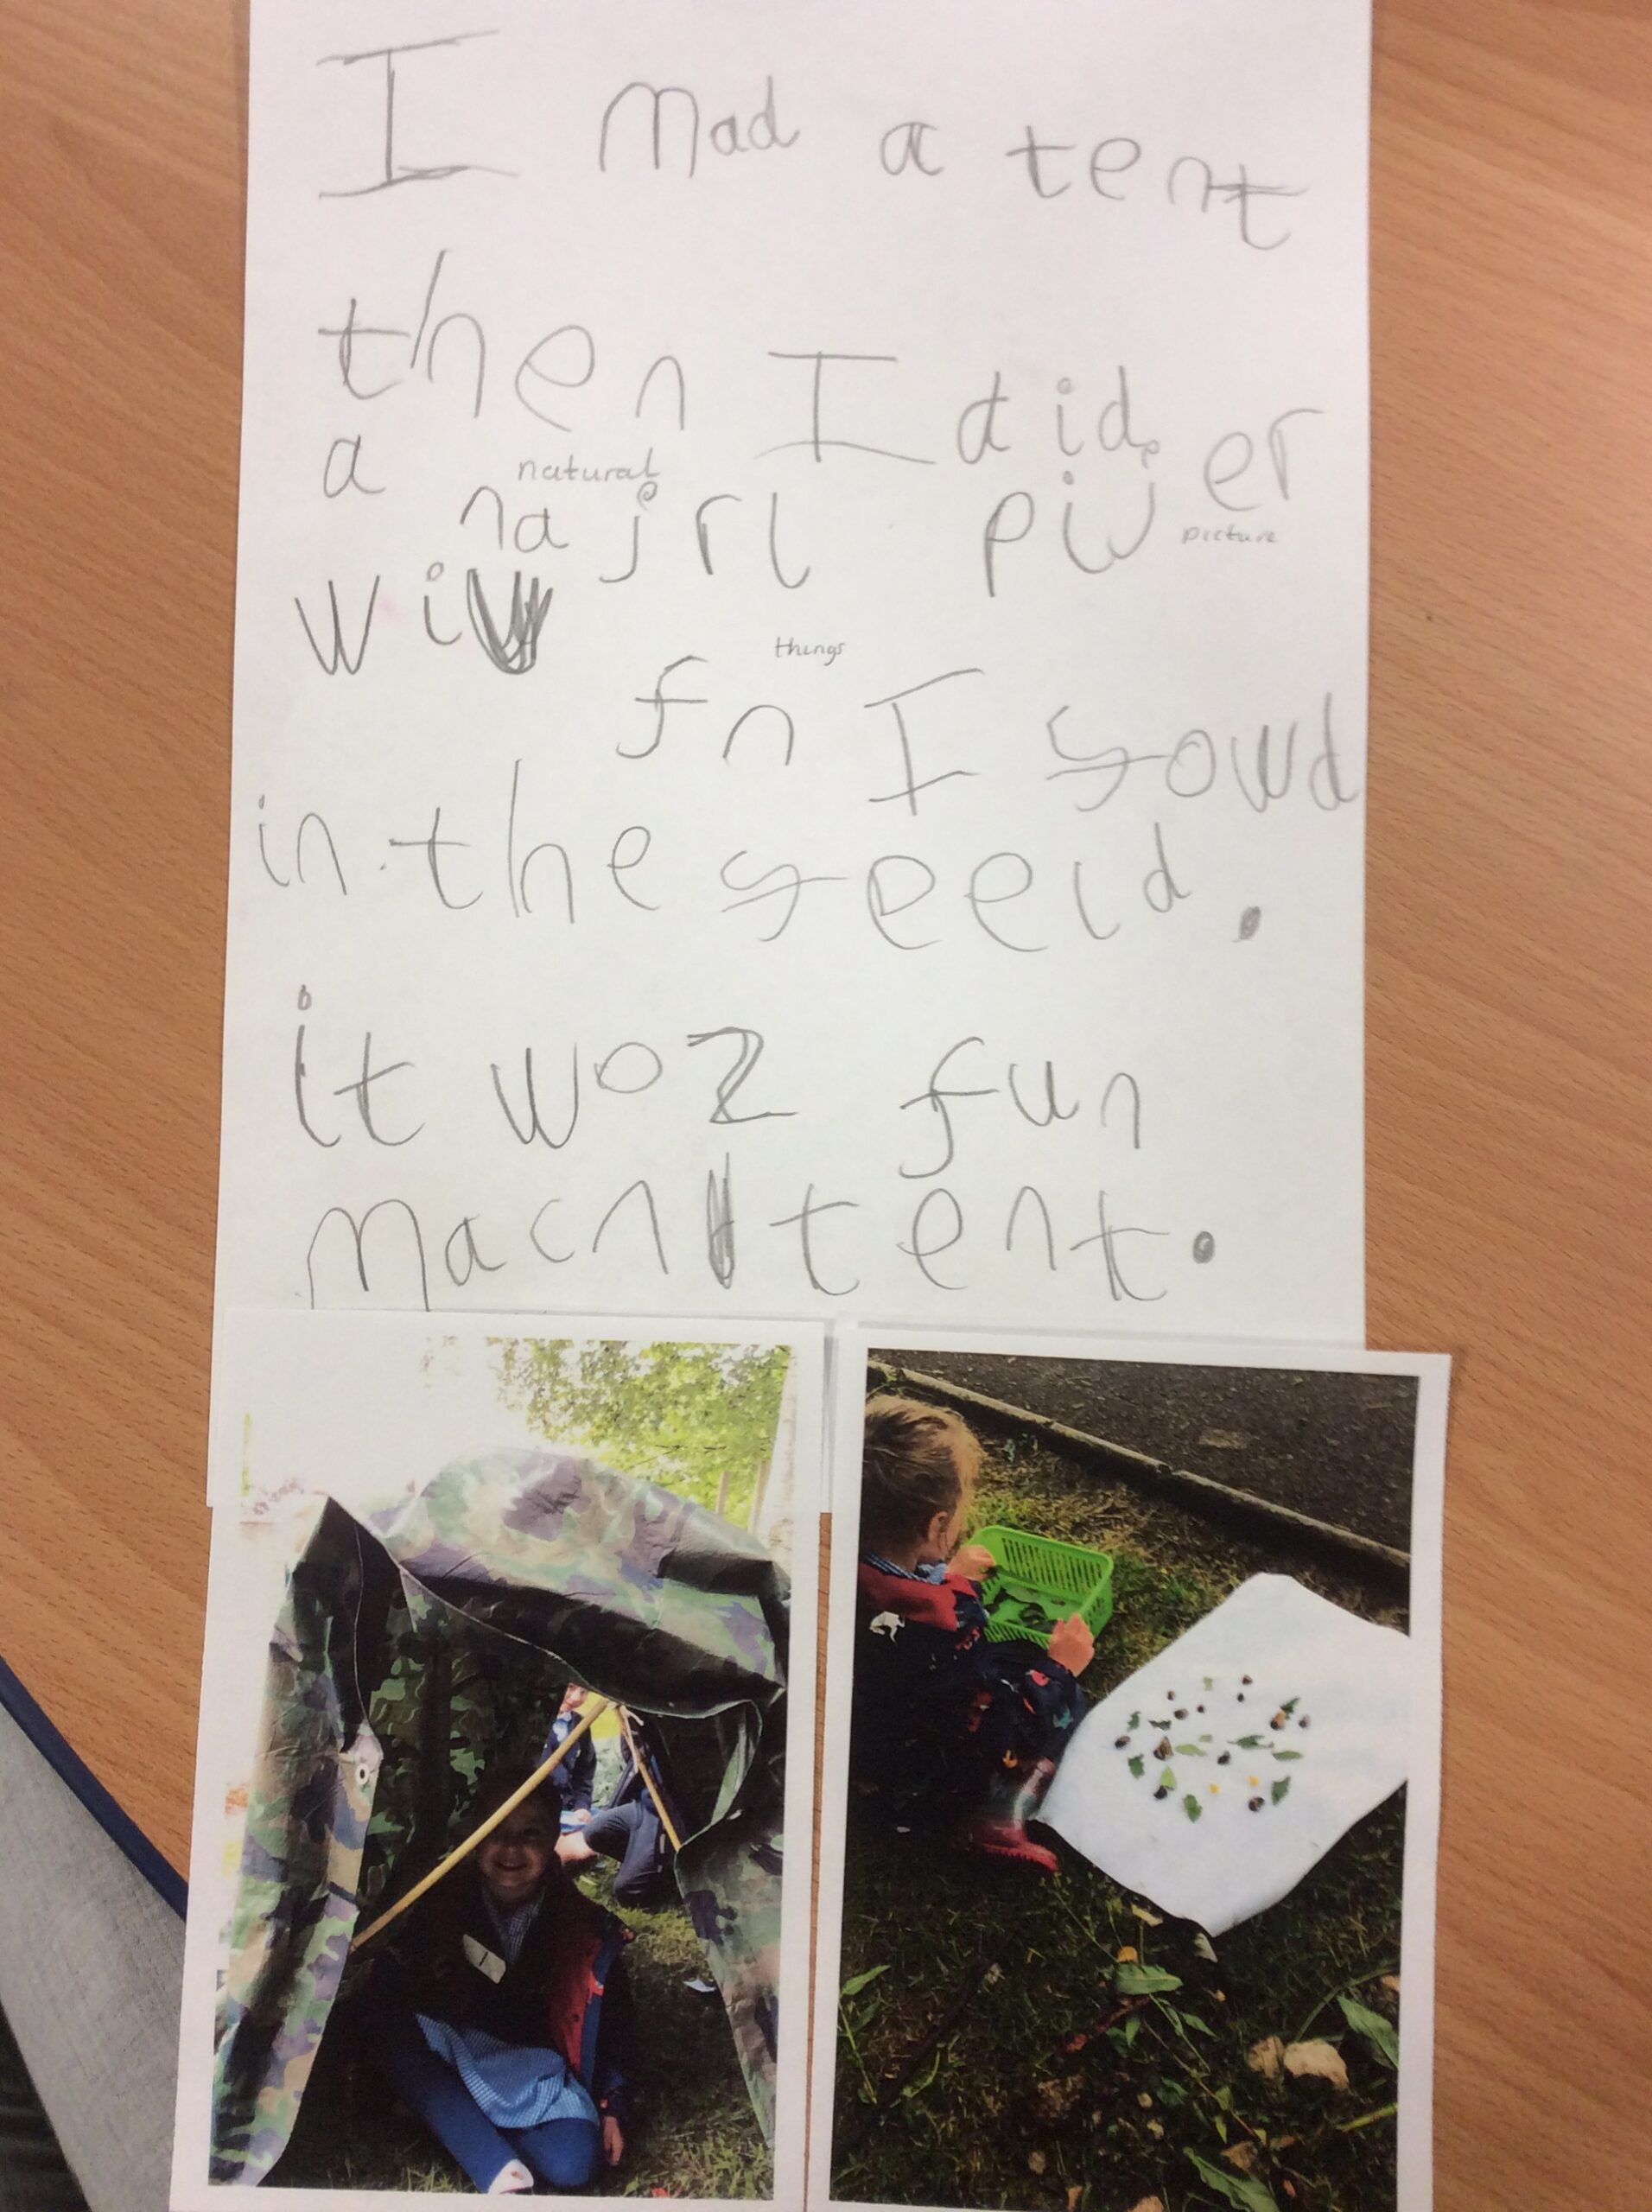 I mad a tent
then I did
a najrl piwer
natural
picture
wiv
things
fn I fowd
in the feeld.
it woz fun
macn tent.